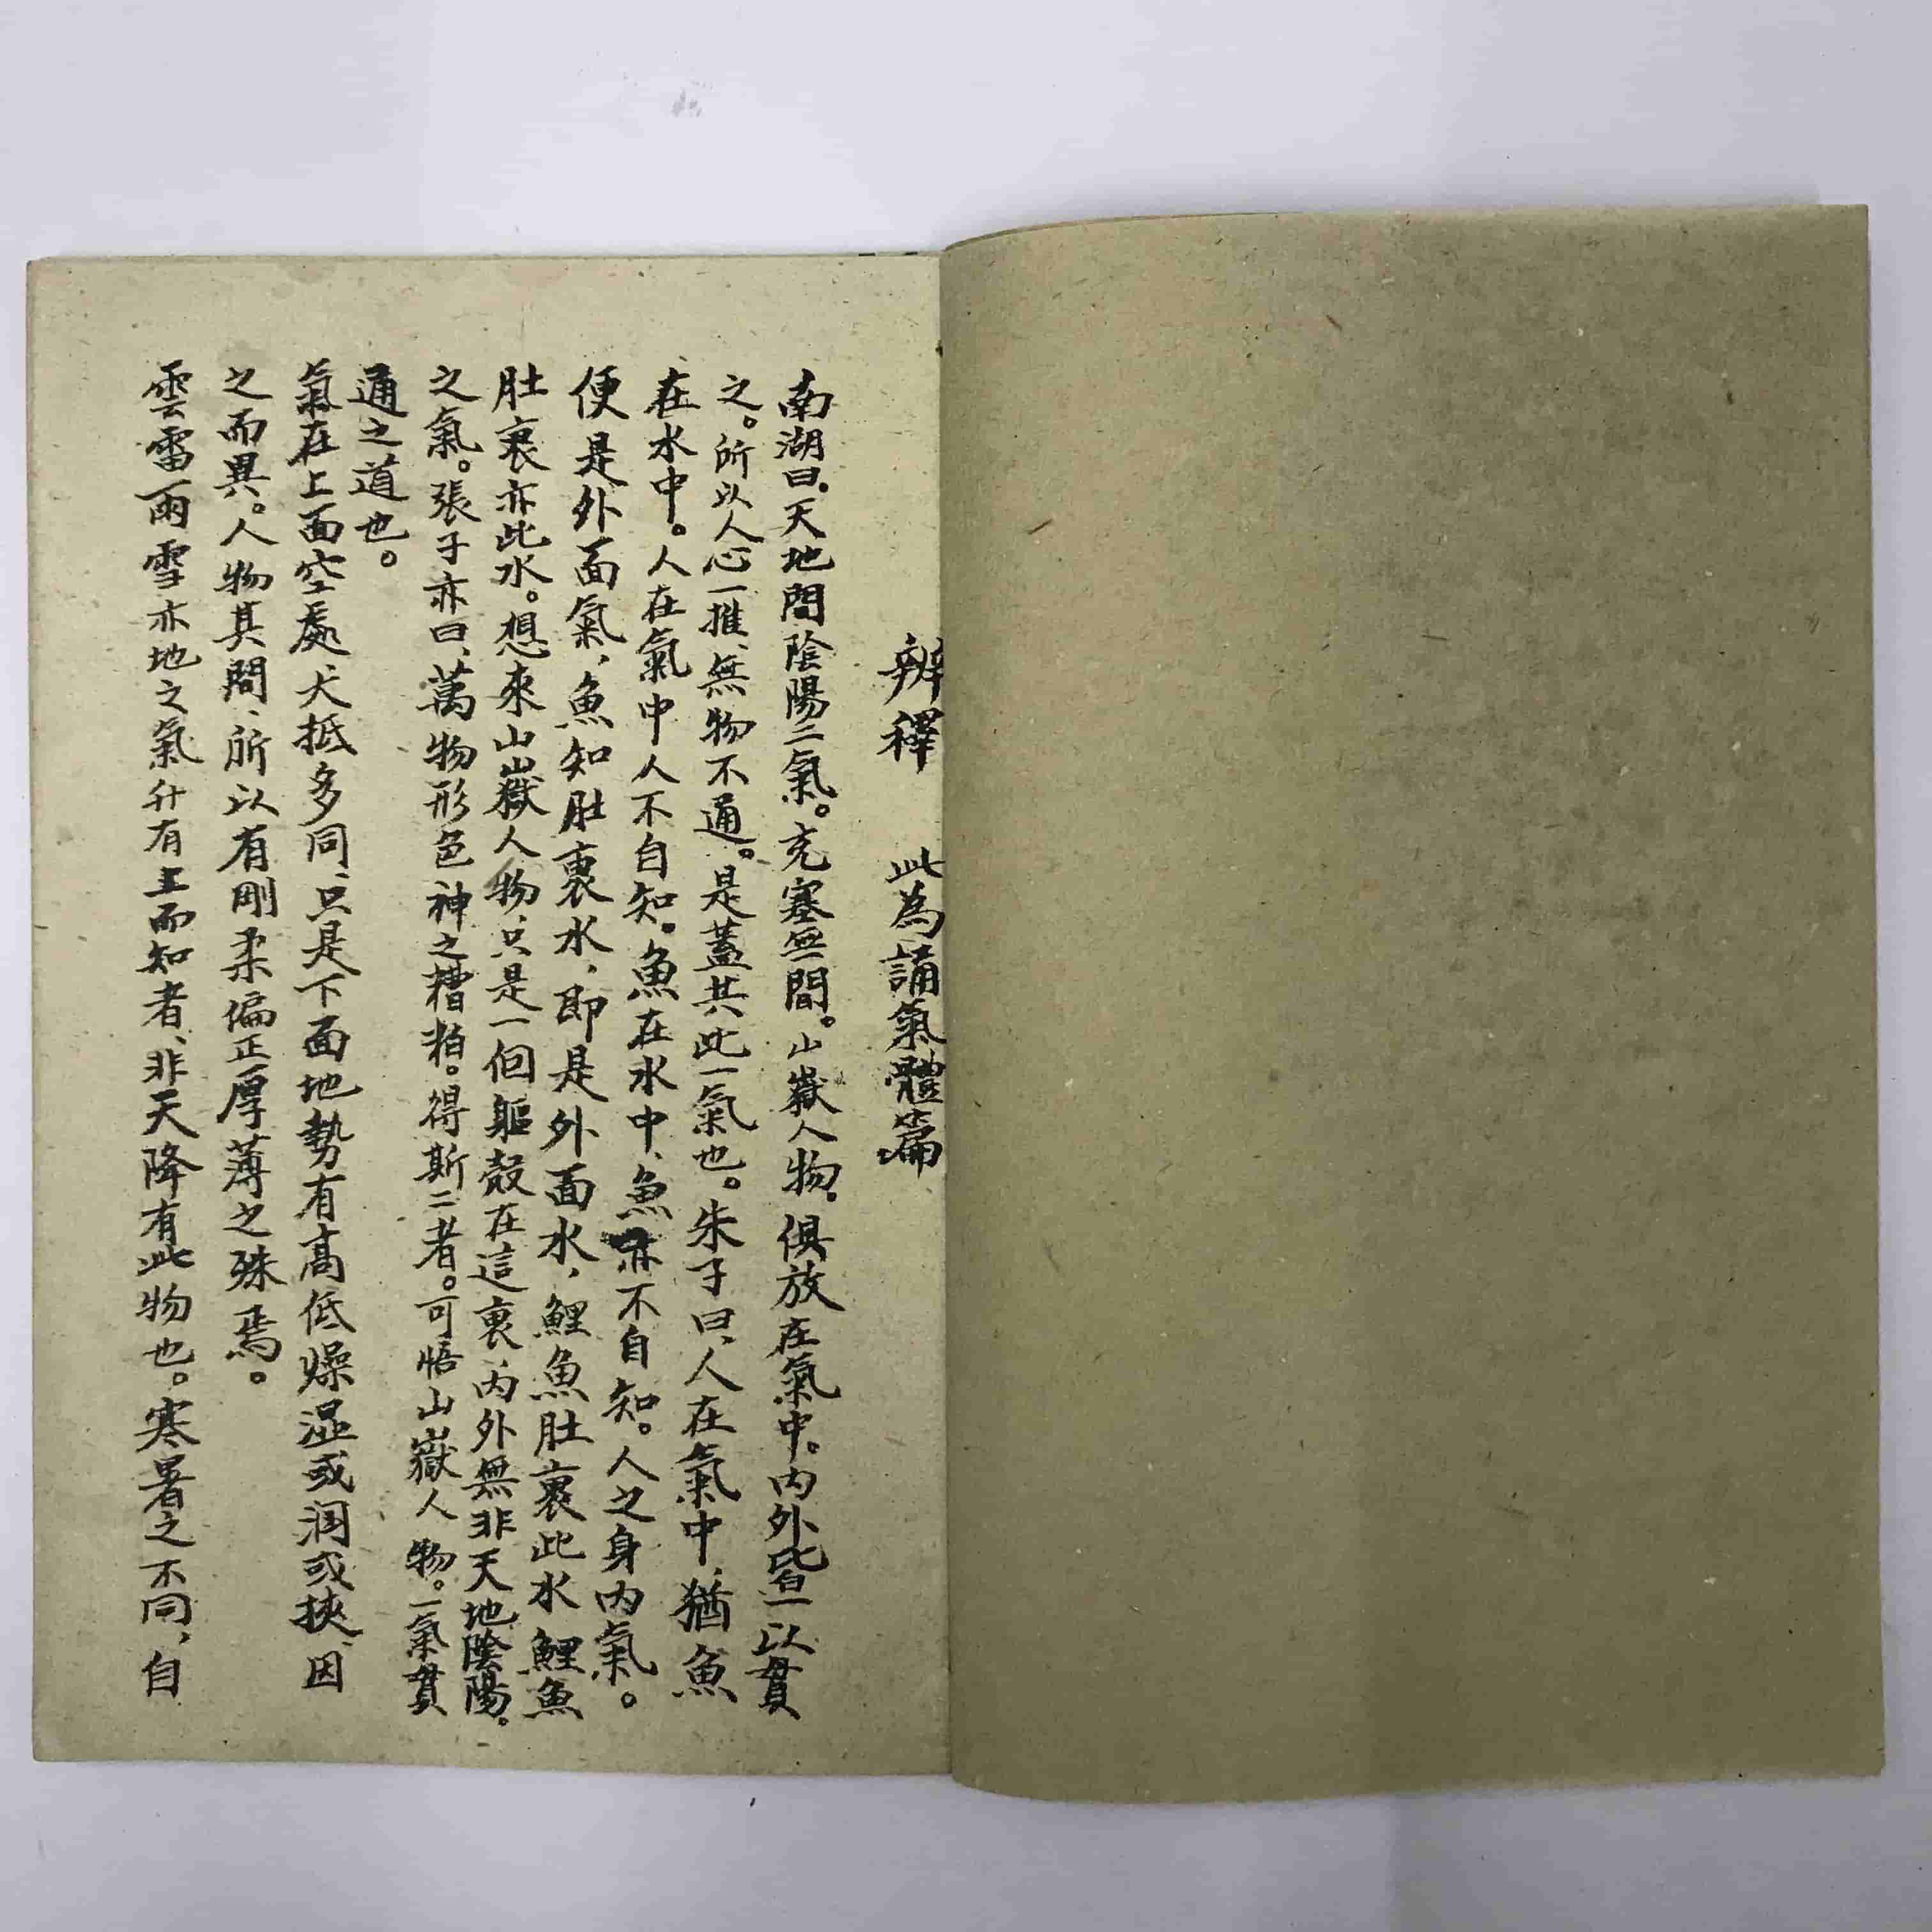 辨釋　此為誦氣體篇
南湖曰.天地間陰陽二氣。充塞無間。山嶽人物。俱放在氣中。內外皆一以貫
之。所以人心一推、無物不通。是蓋共此一氣也。朱子曰、人在氣中、猶魚
在水中。人在氣中人不自知。魚在水中、魚亦不自知。人之身內氣。
便是外面氣，魚知肚裏水，即是外面水，鯉魚肚裏此水鯉魚
肚裏亦此水。想來山嶽人物、只是一個軀殼在這裏、內外無非天地陰陽。
之氣。張子亦曰、萬物形色神之糟粕。得斯二者。可悟山嶽人物。一氣貫
通之道也。
氣在上面空處大抵多同、只是下面地勢有高低燥湿或润或挾、因
之而異。人物其間、所以有剛柔偏正厚薄之殊焉。
雲雷雨雪亦地之氣升有主而知者、非天降有此物也。寒暑之不同，自